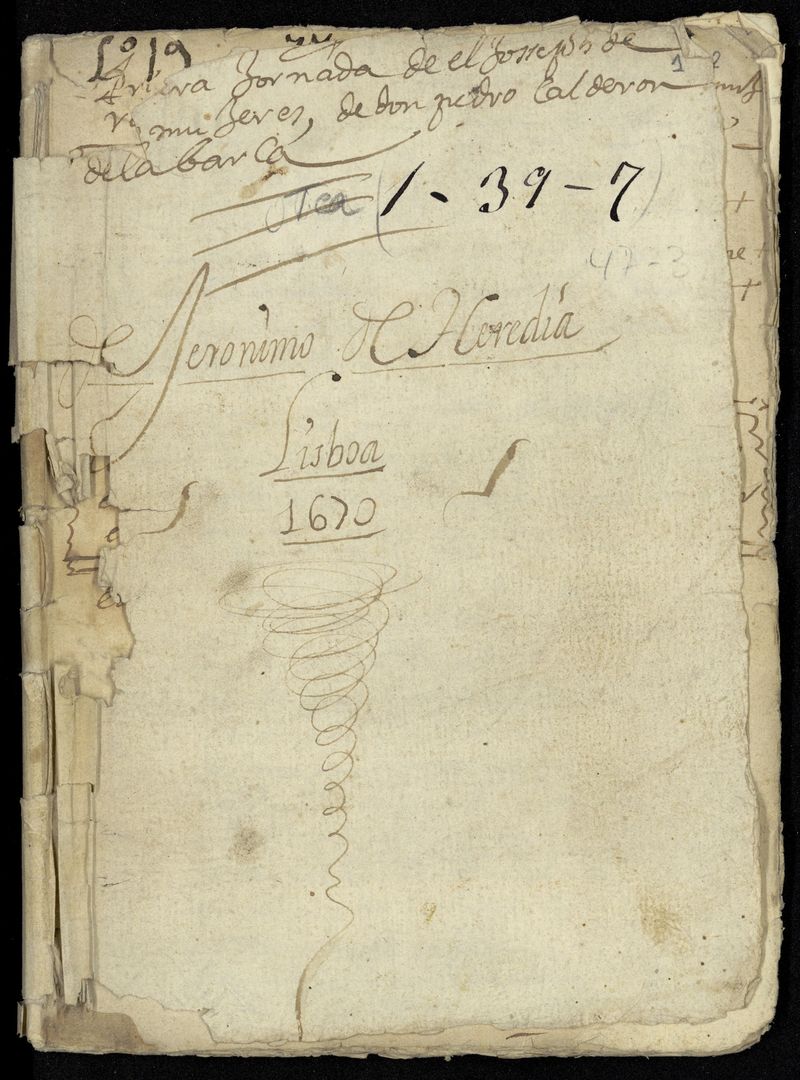 Lº 19
Primera Jornada de el Joseph de
mujeres, de don pedro Calderon
de la barca
Tea (1-39-7)
47-3
de Jeronimo de Heredia
Lisboa
1670
1 2